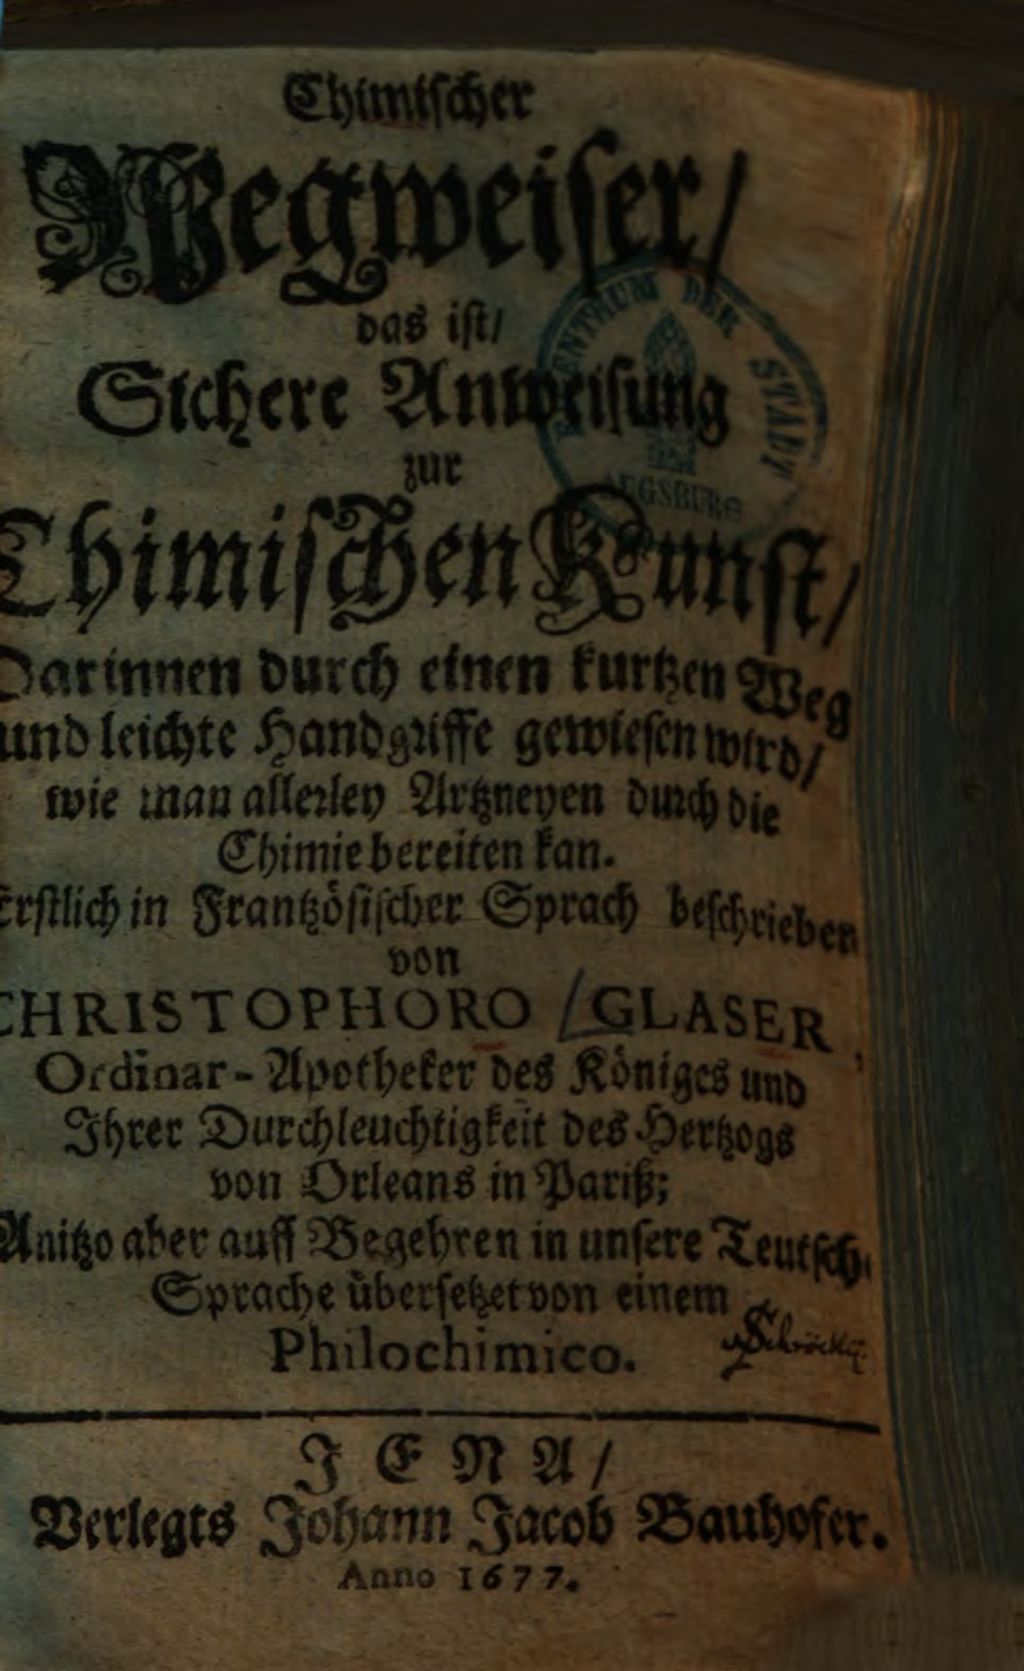 Chimischer
Wegweiser/
das ist/
Sichere Anweisung
zur
Chimischen Kunst/
Darinnen durch einen kurtzen Weg
und leichte Handgriffe gewiesen wird/
wie man allerley Artzneyen durch die
Chimie bereiten kan.
Erstlich in Frantzösischer Sprach beschrieben
von
CHRISTOPHORO GLASER,
Ordinar-Apotheker des Königes und
Ihrer Durchleuchtigkeit des Hertzogs
von Orleans in Pariß;
Anitzo aber auff Begehren in unsere Teutsch.
Sprache übersetzet von einem
Philochimico.
JENA/
Verlegts Johann Jacob Bauhofer.
Anno 1677.
DER STADT
AUGSBURG